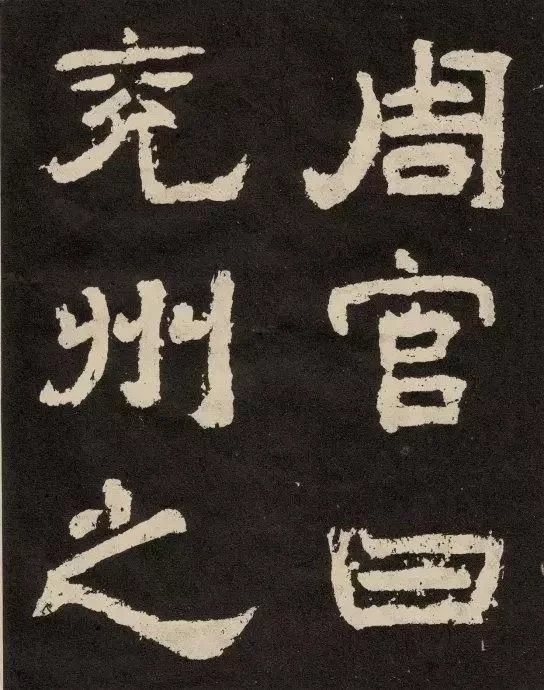 周官曰
兖州之